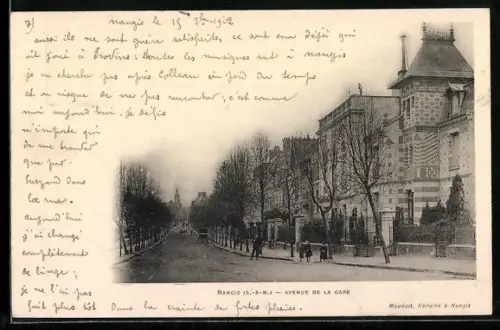 7)
Nangis le 15 7bre 1902
ils ne sont guère satisfaits, ce sont eux déjà qui
ont joué à Provins; toutes les musiques sont à Nangis
je ne cherche pas après Colleau en peur du temps
et au risque de ne pas rencontrer; c'est comme
moi aujourd'hui. je défie
n'importe qui
de me trouver
que par
hazard dans
la rue.
aujourd'hui
j'ai changé
complètement
de linge; je
ne l'ai pas
fait plus tôt dans la crainte de fortes pluies.
NANGIS (S.-&-M.) — AVENUE DE LA GARE
Mauduit, libraire à Nangis